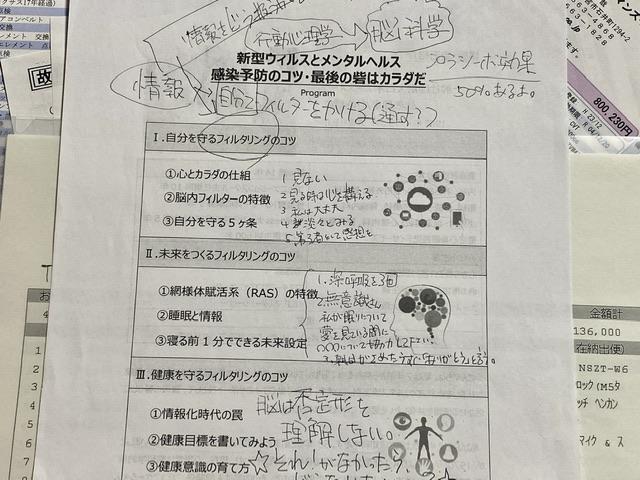 情報をどう
行動心理学
脳科学
新型ウィルスとメンタルヘルス
感染予防のコツ・最後の砦はカラダだ
Program
プラシーボ効果
50%あるよ。
情報
自分でフィルターをかける(通す?)
800,230円
Ⅰ.自分を守るフィルタリングのコツ
①心とカラダの仕組
②脳内フィルターの特徴
③自分を守る5ヶ条
1 見ない
2 見る時は心を構える
3 私は大丈夫
4 淡々とみる
5 第3者として感想を
Ⅱ.未来をつくるフィルタリングのコツ
①網様体賦活系(RAS)の特徴
②睡眠と情報
③寝る前1分でできる未来設定
1.深呼吸を3回
2.無意識さん
私が眠りについて
夢を見ている間に
〇〇について協力して下さい。
3.朝目がさめたらすぐありがとう
Ⅲ.健康を守るフィルタリングのコツ
①情報化時代の罠
②健康目標を書いてみよう
③健康意識の育て方
脳は否定形を
理解しない。
☆それ!がなかったら
金額計
136,000
在納出便)
NSZT-W6
ロック(M5タ
ッチ ハンカン
マイク & ス
1
2
3
4
5
6
7